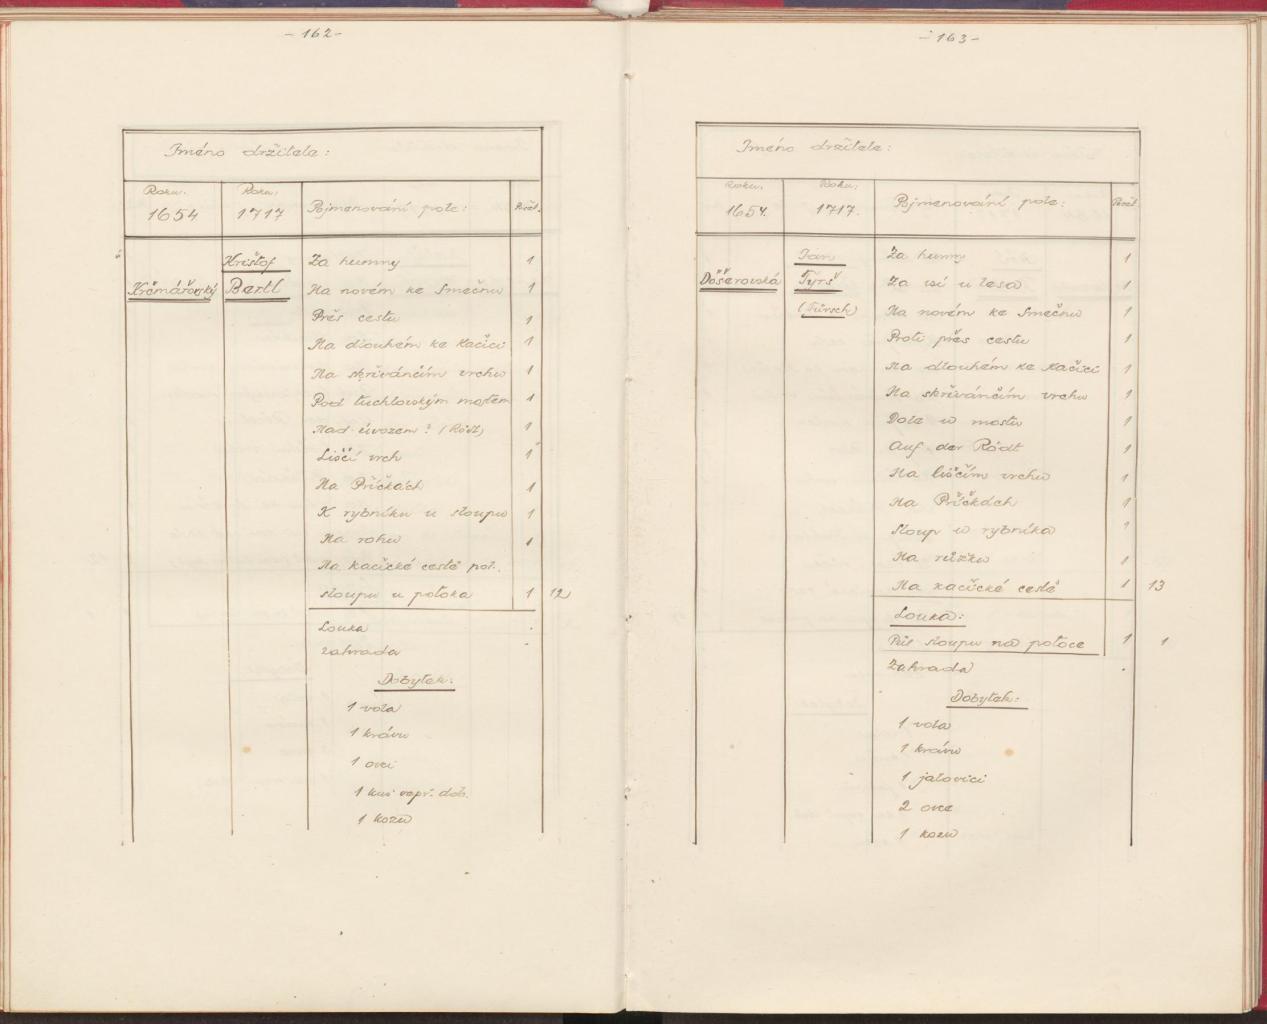 - 162 -
Jméno držitele:
Roku. 1654
Roku. 1717
Pojmenování pole:
Počet.
Krčmářovský
Krištof Bertl
Za humny 1
Na novém ke Smečnu 1
Přes cestu 1
Na dlouhém ke Kačici 1
Na skřivánčím vrchu 1
Pod tuchlovským mostem 1
Nad úvozem? (Rödt) 1
Liščí vrch 1
Na Příčkách 1
K rybníku u sloupu 1
Na rohu 1
Na kačické cestě pol.
sloupu u potoka 1 12
Louka .
zahrada .
Dobytek:
1 vola
1 krávu
1 ovci
1 kus vepř. dob.
1 kozu
- 163 -
Jméno držitele:
Roku. 1654.
Roku. 1717.
Pojmenování pole:
Počet
Došerovská
Jan
Tyrš
(Türsch)
Za humny 1
Za vsí u lesa 1
Na novém ke Smečnu 1
Proti přes cestu 1
Na dlouhém ke Kačici 1
Na skřivánčím vrchu 1
Dole u mostu 1
Auf der Rödt 1
Na liščím vrchu 1
Na Příčkách 1
Sloup u rybníka 1
Na růžku 1
Na kačické cestě 1 13
Louka:
Půl sloupu na potoce 1 1
Zahrada .
Dobytek:
1 vola
1 krávu
1 jalovici
2 ovce
1 kozu